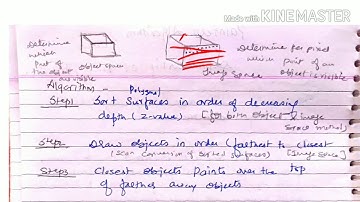 Made with KINEMASTER
Determine which part of the object are visible
Object space
Image space
Determine per pixel which part of an object is visible
Algorithm -
Polygons
Step1 Sort Surfaces in order of decreasing
depth (z-value) [for both Object & Image
Space method]
Step Draw objects in order (farthest to closest
(Scan Conversion of Sorted surfaces) [Image Space]
Step3 Closest Objects Paints over the top
of farther away objects